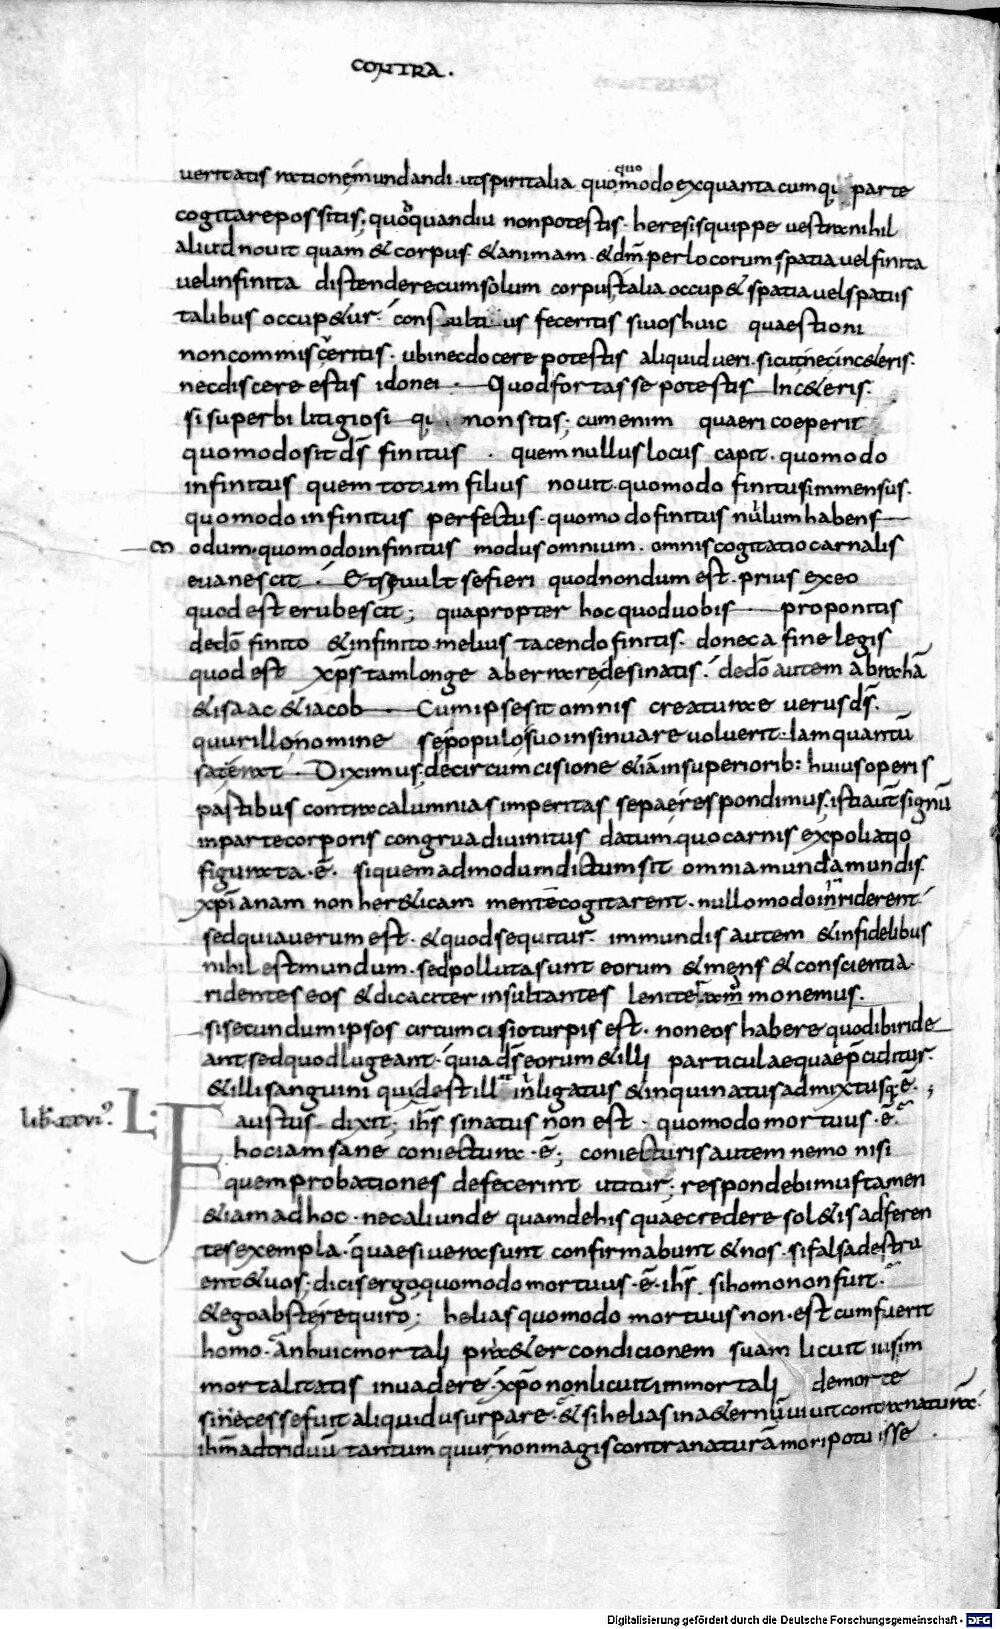 CONTRA.
ueritatis rationem mundandi. ut spiritalia quomodo ex quantacumq; parte
cogitare possitis; quo quandiu non potestis. heresis quippe uestra nihil
aliud nouit quam & corpus. & animam. & dm̄ per locorum spatia uel finita
uel infinita distendere cum solum corpus talia occup& spatia uel spatiis
talibus occup&ur. consultius feceritis si uos huic quaestioni
non commisceritis. ubi nec docere potestis aliquid ueri. sicut nec in c&eris.
nec discere estis idonei. Quod fortasse potestis In c&eris.
si superbi litigiosi q; non sitis; cum enim quaeri coeperit
quomodo sit ds̄ finitus. quem nullus locus capit. quomodo
infinitus quem totum filius nouit. quomodo finitus immensus.
quomodo infinitus perfectus. quomodo finitus nullum habens
modum. quomodo infinitus modus omnium. omnis cogitatio carnalis
euanescit. Et si uult se fieri quod nondum est. prius ex eo
quod est erubescit; quapropter hoc quod uobis proponitis
de dō finito & infinito. melius tacendo finitis. donec a fine legis
quod est xp̄s tam longe aberrare desinatis. de dō autem abrahā
& isaac & iacob. Cum ipse sit omnis creaturae uerus ds̄.
quur illo nomine se populo suo insinuare uoluerit. Iam quantū
sat erat. Diximus; de circumcisione &iā in superiorib: huius operis
partibus contra calumnias imperitas sepae respondimus; isti aut̄ signū
in parte corporis congrua diuinitus datum. quo carnis expoliatio
figurata. ē. si quemadmodum dictum sit omnia munda mundis.
xp̄ianam non her&icam mentē cogitarent. nullo modo inriderent
sed quia uerum est. & quod sequitur. immundis autem & infidelibus
nihil est mundum. sed polluta sunt eorum & mens & conscientia.
ridentes eos & dicaciter insultantes lenit̄ monemus.
si secundum ipsos circumcisio turpis est. non eos habere quod ibi ride
ant sed quod lugeant. quia ds̄ eorum & illi particulae quae p̄ciditur.
& illi sanguini qui de st ill inligatus & inquinatus admixtusq; ē.;
lib. xxvi.
L. Faustus dixit; ihs̄ si natus non est. quomodo mortuus. ē.
hoc iam sane coniectura. ē; coniecturis autem nemo nisi
quem probationes defecerint utitur; respondebimus tamen
&iam ad hoc. nec aliunde quam de his quae credere sol&is adferen
tes exempla. quae si uera sunt confirmabunt & nos. si falsa destru
ent & uos; dicis ergo. quomodo mortuus. ē. ihs̄. si homo non fuit.
& ego abs te requiro; helias quomodo mortuus non. est cum fuerit
homo. An huic mortali praet& er condicionem suam licuit ius im
mortalitatis inuadere. xp̄o non licuit immortali de morte
si necesse fuit aliquid usurpare. & si helias in a&ernū uiuit contra naturā.
ihm̄ ad triduū tantum quur non magis contra naturā mori potuisse